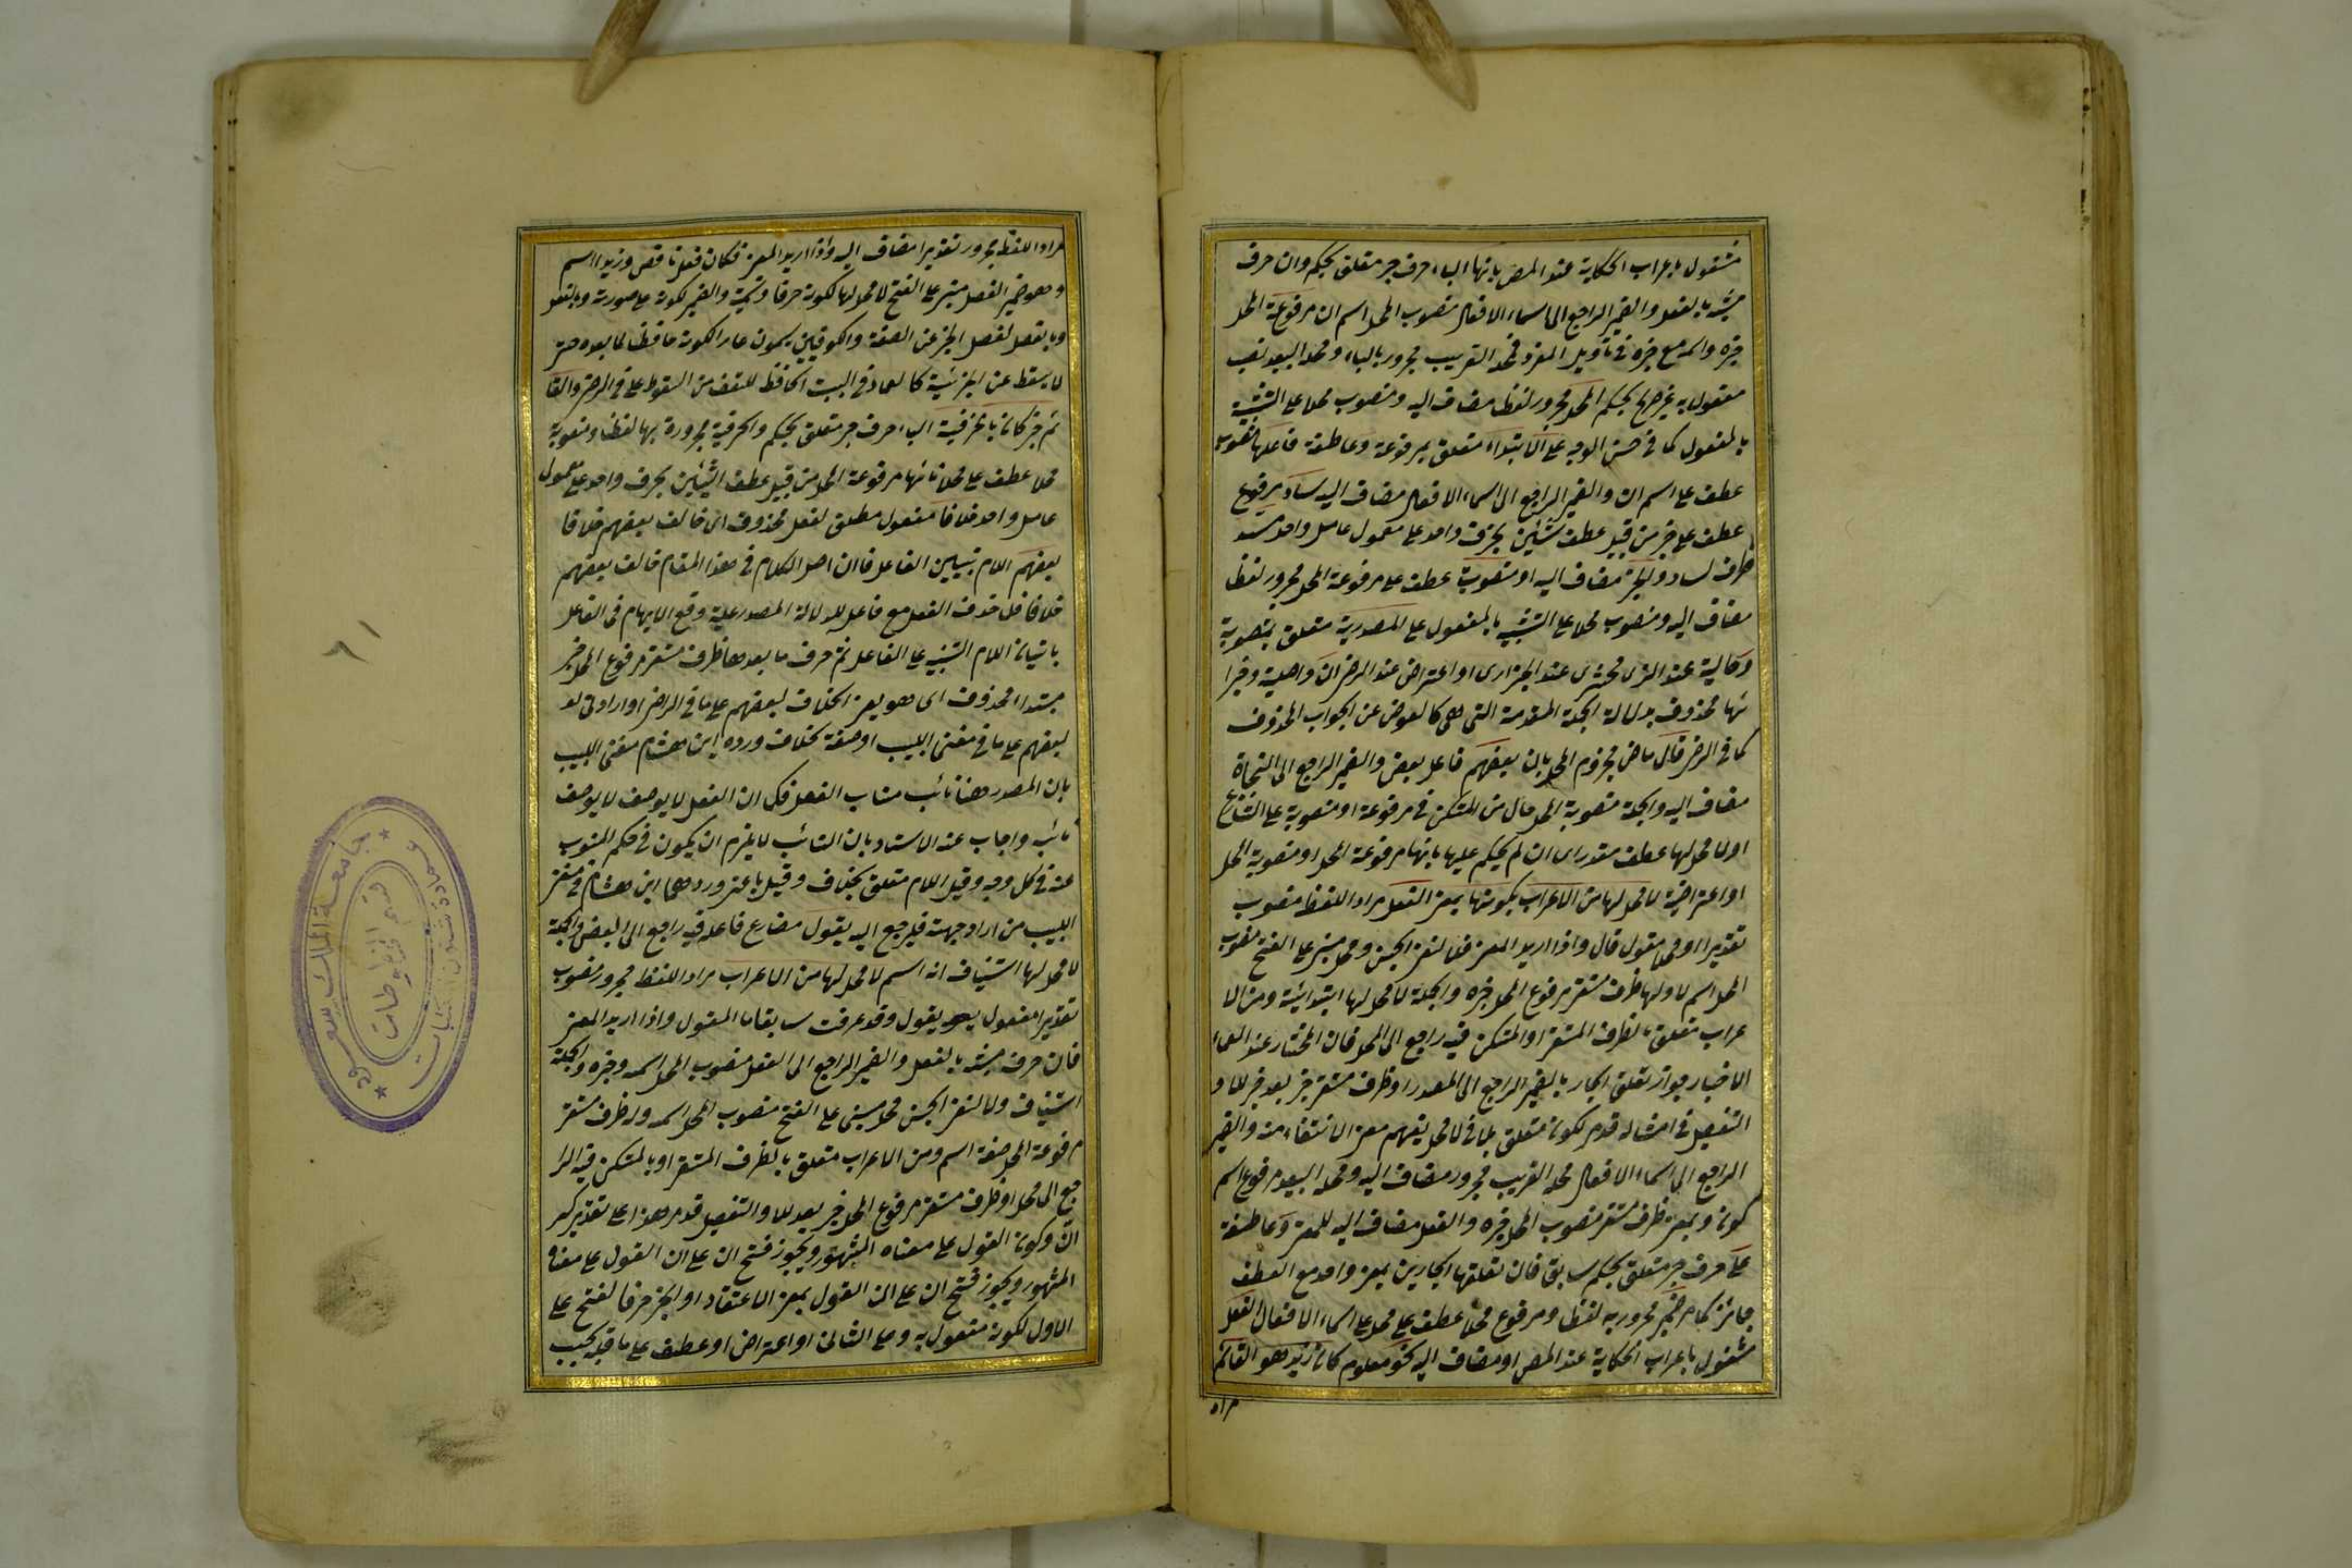 مشغول باعراب الحكاية عند المص بانها الباء حرف جر متعلق بحكم وان حرف
مشبه بالفعل والضمير الراجع الى اسماء الافعال منصوب المحل اسم ان مرفوعة المحل
خبره واسمه مع خبره في تأويل المفرد فمحله القريب مجرور بالباء ومحله البعيد نصب
مفعول به غير صريح بحكم المحل مجرور لفظا مضاف اليه ومنصوب محلا على التشبيه
بالمفعول كما في حسن الوجه على الابتداء متعلق بمرفوعة وعاطفة فاعلها
عطف على اسم ان والضمير الراجع الى اسماء الافعال مضاف اليه ساد مرفوع
عطف على خبر من قبيل عطف شيئين بحرف واحد على معمول عامل واحد مسد
ظرف لساد والخبر مضاف اليه او منصوبة عطف على مرفوعة المحل مجرور لفظا
مضاف اليه ومنصوب محلا على التشبيه بالمفعول على المصدرية متعلق بمنصوبة
وحالية عند الزمخشرى عند الجزارى او اعتراض عند الرضى ان واصلية وجزا
ئها محذوف بدلالة الجملة المقدمة التى هى كالعوض عن الجواب المحذوف
كما في الرضى قال ماض مجزوم المحل بان بعضهم فاعل بعض والضمير الراجع الى النحاة
مضاف اليه والجملة منصوبة المحل حال من المستكن في مرفوعة او منصوبة على التنازع
او لا محل لها عطف مقدر اى ان لم يحكم عليها بانها مرفوعة المحل او منصوبة المحل
او اعتراضية لا محل لها من الاعراب بكونها بمعنى الفعل مراد اللفظ منصوب
تقديرا او محلا مقول قال واذا اريد المعنى فلا لنفى الجنس ومحل مبنى على الفتح منصوب
المحل اسم لا ولها ظرف مستقر مرفوع المحل خبره والجملة لا محل لها ابتدائية ومن الا
عراب متعلق بالظرف المستقر او المستكن فيه راجع الى المحل فان المختار عند العما
الاخبار جواز تعلق الجار بالضمير الراجع الى المصدر او ظرف مستقر خبر بعد خبر للا و
التفصيل في امثاله قدم لكونه متعلق لما في لا محل يفهم معنى الانتفاء منه والضمير
الراجع الى اسماء الافعال محله القريب مجرور مضاف اليه ومحله البعيد مرفوع اسم
كونه وبمعنى ظرف مستقر منصوب المحل خبره والفعل مضاف اليه للمعنى وعاطفة
على حرف جر متعلق بحكم سابق فان تعلقها الجارين بمعنى واحد مع العطف
جائز كما مر ضمير مجرور به لفظا ومرفوع محلا عطف على محل على اسماء الافعال الفعل
مشغول باعراب الحكاية عند المص او مضاف اليه كنحو معلوم كان زيد هو القائم
مراد
مراد اللفظ مجرور تقديرا مضاف اليه واذا اريد المعنى فكان فعل ناقص وزيد اسم
وهو ضمير الفصل مبنى على الفتح لا محل لها لكونه حرفا وتسمية والضمير لكونه على صورته وبالفصل
وبالفصل لفصل الخبر عن الصفة والكوفيين يسمون عمادا لكونه حافظا لما بعده حتى
لا يسقط عن الخبرية كالعماد في البيت الحافظ للسقف من السقوط على في الرضى والقا
ئم خبر كان بالحرفية الباء حرف جر متعلق بحكم والحرفية مجرورة بها لفظا ومنصوبة
محلا عطف على محل بانها مرفوعة المحل من قبيل عطف الشيئين بحرف واحد على معمول
عامل واحد خلافا مفعول مطلق لفعل محذوف اى خالف بعضهم خلافا
لبعضهم اللام تبيين الفاعل فان اصل الكلام في هذا المقام خالف بعضهم
خلافا فلما حذف الفعل مع فاعل لدلالة المصدر عليه وقع الابهام في الفاعل
باتيان اللام التنبيه على الفاعل ثم حرف ما بعدها ظرف مستقر مرفوع المحل خبر
مبتداء محذوف اى هو يعنى الخلاف لبعضهم على ما في الرضى او ارادتى لـ
لبعضهم على ما في مغنى اللبيب او صفة لخلاف ورده ابن هشام مغنى اللبيب
بان المصدر هنا نائب مناب الفعل فكما ان الفعل لا يوصف لا يوصف
نائبه واجاب عنه الاستاد بان النائب لا يلزم ان يكون في حكم المنوب
عنه في كل وجه وقيل اللام متعلق بخلاف وقيل باعنى وردهما ابن هشام في مغنى
اللبيب من اراد وجهته فليرجع اليه يقول مضارع فاعله فيه راجع الى البعض والجملة
لا محل لها استيناف انه اسم لا محل لها من الاعراب مراد اللفظ مجرور منصوب
تقديرا مفعول به يقول وقد عرفت سابقا المقول واذا اريد المعنى
فان حرف مشبه بالفعل والضمير الراجع الى الفعل منصوب المحل اسمه وخبره والجملة
استيناف ولا لنفى الجنس محل مبنى على الفتح منصوب المحل اسمه وله ظرف مستقر
مرفوعة المحل صفة اسم ومن الاعراب متعلق بالظرف المستقر او بالمستكن فيه الرا
جع الى المحل او ظرف مستقر مرفوع المحل خبر بعد للا والتفصيل قد مر هذا على تقدير كسر
ان وكون القول على معناه المشهور ويجوز فتح ان على ان القول على معناه
المشهور ويجوز فتح ان على ان القول بمعنى الاعتقاد او الخبر حرفا لفتح على
الاول لكونه مفعول به وعلى الثانى او اعتراض او عطف على ما قبله بحسب
٦١
جامعة الملك سعود
عمادة شئون المكتبات
قسم المخطوطات